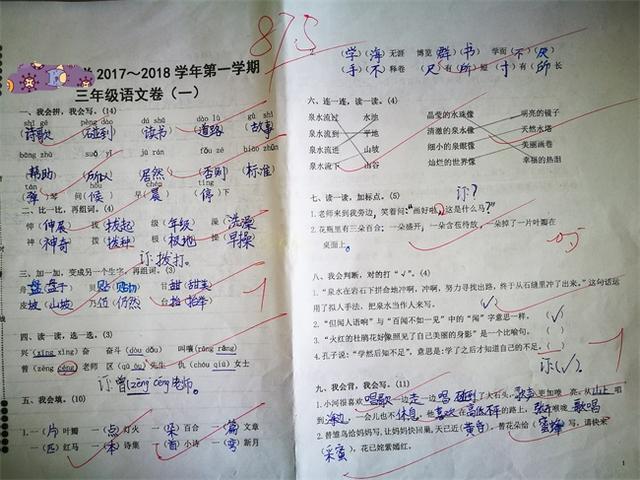 87.5
2017～2018 学年第一学期
三年级语文卷（一）
一、我会拼，我会写。(14)
shī gē pèng dào dú shū dào lù gù shì
(诗歌) (碰到) (读书) (道路) (故事)
bāng zhù suǒ yǐ jū rán fǒu zé biāo zhǔn
(帮助) (所以) (居然) (否则) (标准)
(弹)琴 问(候) 早(晨) (停)下
二、比一比，再组词。(4)
伸(伸展) 拔(拔起) 级(年级) 澡(洗澡)
神(神奇) 拨(拨种) 极(极地) 操(早操)
订:拨打.
三、加一加，变成另一个生字，再组词。(3)
舟 盘 盘子 贝 贴 甘 甜 甜美
皮 坡(山坡) 乃 仍(仍然) 台 抬 抬举
-1
四、读一读，选一选。(3)
兴(xīng xìng)奋 奋斗(dòu dǒu) 叫嚷(rāng rǎng)
曾(zēng céng)老师 区(qū ōu)先生 仇(chóu qiú)女士
订:曾(zēng céng)老师.
五、我会填。(10)
1.一(片)叶瓣 一(点)灯火 一(朵)百合 一(篇)文章
一(匹)红马 一(本)诗集 一(首)小诗 一(弯)新月
(学)(海)无涯 博览(群)(书) 学而(不)(厌)
(手)(不)释卷 (尺)有(所)短 (寸)有(所)长
六、连一连，读一读。(4)
泉水流过 水池 晶莹的水珠像 明亮的镜子
泉水流到 平地 清澈的泉水像 天然水塔
泉水流进 山坡 细小的泉眼像 美丽画卷
泉水流下 山谷 灿烂的世界像 幸福的热泪
七、读一读，加标点。(5)
订:?
1.老师来到我旁边，笑着问:“画好啦，这是什么马?”
2.花瓶里有三朵百合:一朵盛开，一朵含苞待放，一朵掉了一片叶瓣在
桌面上。
八、我会判断，对的打“√”。(4)
1.“泉水在岩石下拼命地冲啊，冲啊，努力寻找出路，终于从石缝里冲了出来。”这句话运
用了拟人手法，把泉水当作人来写。 (√)
2.“但闻人语响”与“百闻不如一见”中的“闻”字意思一样。 (√)
3.“火红的杜鹃花好像照见了自己美丽的身影”是一个比喻句。 ( )
4.孔子说:“学然后知不足”，意思是:学了之后才知道自己的不足。 ( )
订:(√).
-1
九、我会背，我会写。(11)
1.小河很喜欢(唱歌)一边(走)一边(唱)
2.
(采蜜)，花已姹紫嫣红。
1